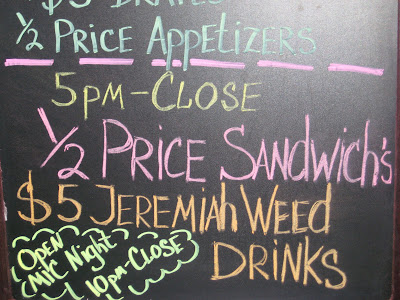 $3 DRAFTS
1/2 PRICE APPETIZERS
5PM-CLOSE
1/2 PRICE SANDWICH'S
$5 JEREMIAH WEED
DRINKS
OPEN
MIC Night
10PM-CLOSE